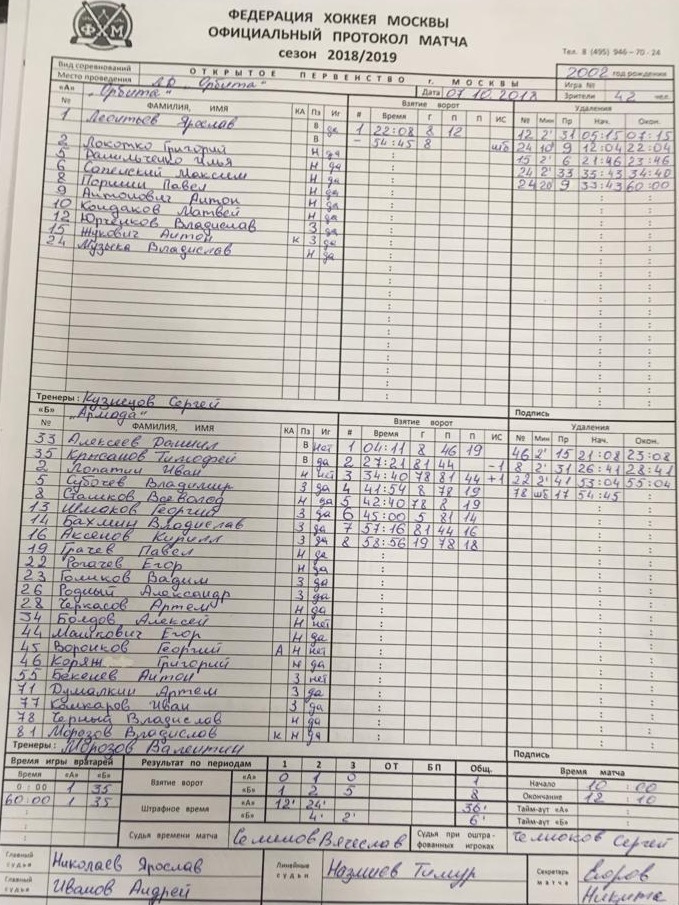 ФЕДЕРАЦИЯ ХОККЕЯ МОСКВЫ
ОФИЦИАЛЬНЫЙ ПРОТОКОЛ МАТЧА
сезон 2018/2019
Тел. 8 (495) 946-70-24
Вид соревнований ОТКРЫТОЕ ПЕРВЕНСТВО г. МОСКВЫ 2002 год рождения
Место проведения ЛД "Орбита" Дата 07.10.2018 Игра №
Зрители 42 чел.
«А» "Орбита" Взятие ворот Удаления
№ ФАМИЛИЯ, ИМЯ КА Пз Иг # Время Г П П ИС № Мин Пр Нач. Окон.
1 Леонтьев Ярослав В да 1 22:08 8 12 12 2' 31 05:15 07:15
В - 54:45 8 шб 24 10' 9 12:04 22:04
2 Локотко Григорий Н да 15 2' 6 21:46 23:46
5 Данильченко Илья Н да 24 2' 33 33:43 34:40
6 Сапельский Максим Н да 24 20' 9 33:43 60:00
8 Поришин Павел Н да
9 Антонович Антон Н да
10 Кондаков Матвей Н да
12 Юрченков Владислав З да
15 Жукович Антон К З да
24 Музыка Владислав Н да
Тренеры: Кузнецов Сергей Подпись
«Б» "Армада" Взятие ворот Удаления
№ ФАМИЛИЯ, ИМЯ КА Пз Иг # Время Г П П ИС № Мин Пр Нач. Окон.
33 Алексеев Даниил В нет 1 04:11 8 46 19 46 2' 15 21:08 23:08
35 Крысанов Тимофей В да 2 27:21 81 44 -1 8 2' 31 26:41 28:41
2 Лопатин Иван Н нет 3 34:40 78 81 44 +1 22 2' 41 53:04 55:04
5 Субочев Владимир З да 4 41:54 8 78 19 78 шб 17 54:45
8 Стайков Всеволод Н да 5 42:40 78 8 19
13 Шмаков Георгий З да 6 45:00 5 81 14
14 Бахмин Владислав З да 7 57:16 81 44 16
16 Аксенов Кирилл З да 8 58:56 19 78 18
19 Грачев Павел Н да
22 Рогачев Егор Н да
23 Голиков Вадим З да
26 Родный Александр З да
28 Черкасов Артем Н да
34 Болдов Алексей Н нет
44 Машкович Егор Н да
45 Воронков Георгий А Н нет
46 Коряж Григорий Н да
55 Бекенев Антон З нет
71 Думалкин Артем З да
77 Камкаров Иван З да
78 Черный Владислав Н да
81 Морозов Владислав К Н да
Тренеры: Морозов Валентин Подпись
Время игры вратарей Результат по периодам 1 2 3 ОТ БП Общ. Время матча
Время «А» «Б» Взятие ворот «А» 0 1 0 1 Начало 10:00
0:00 1 35 «Б» 1 2 5 8 Окончание 12:10
60:00 1 35 Штрафное время «А» 12' 24' 36' Тайм-аут «А»
«Б» 4' 2' 6' Тайм-аут «Б»
Судья времени матча Семенов Вячеслав Судья при оштрафованных игроках Сергей
Главный судья Николаев Ярослав Линейные судьи Назмиев Тимур Секретарь матча Егоров Никита
Главный судья Иванов Андрей